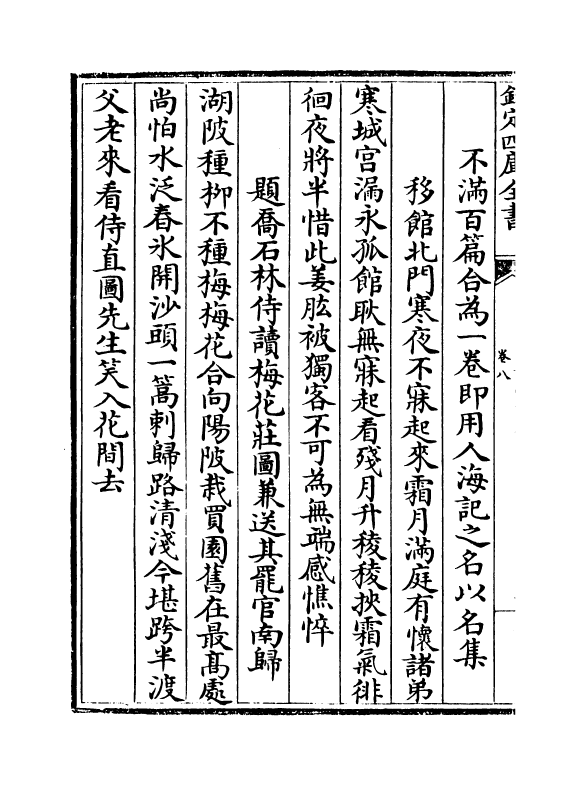 欽定四庫全書
卷八
不滿百篇合為一卷即用人海記之名以名集
移館北門寒夜不寐起來霜月滿庭有懷諸弟
寒城宮漏永孤館耿無寐起看殘月升稜稜挾霜氣徘
徊夜將半惜此姜肱被獨客不可為無端感憔悴
題喬石林侍讀梅花莊圖兼送其罷官南歸
湖陂種柳不種梅梅花合向陽陂栽買園舊在最髙處
尚怕水泛春氷開沙頭一篙剌歸路清淺今堪跨半渡
父老來看侍直圖先生笑入花間去